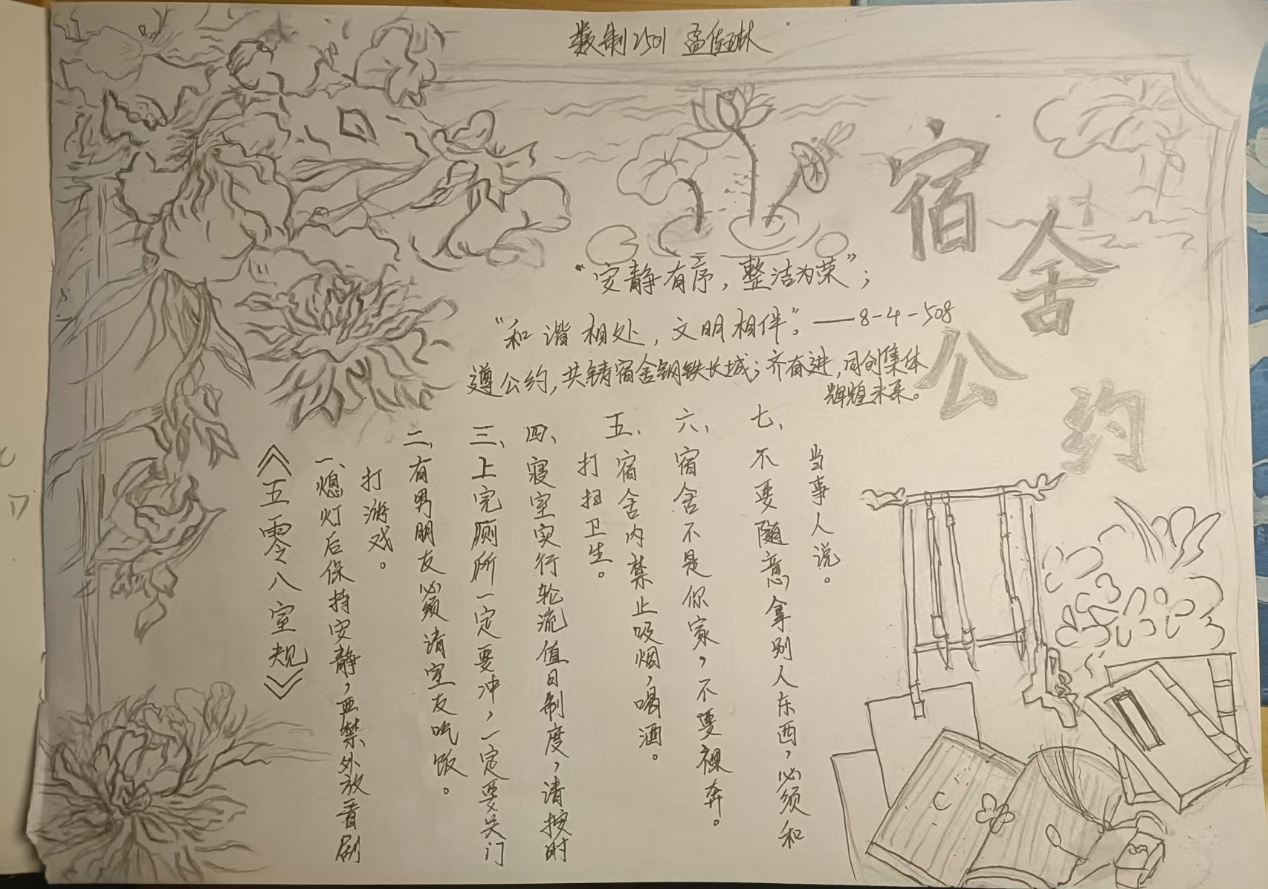 数制2501 孟佳琳
宿舍公约
“安静有序，整洁为荣”；
“和谐相处，文明相伴。”——8-4-508
遵公约，共铸宿舍钢铁长城；齐奋进，同创集体
辉煌未来。
《五零八室规》
一、熄灯后保持安静，严禁外放看剧
打游戏。
二、有男朋友必须请室友吃饭。
三、上完厕所一定要冲，一定要关门
四、寝室实行轮流值日制度，请按时
打扫卫生。
五、宿舍内禁止吸烟，喝酒。
六、宿舍不是你家，不要裸奔。
七、不要随意拿别人东西，必须和
当事人说。